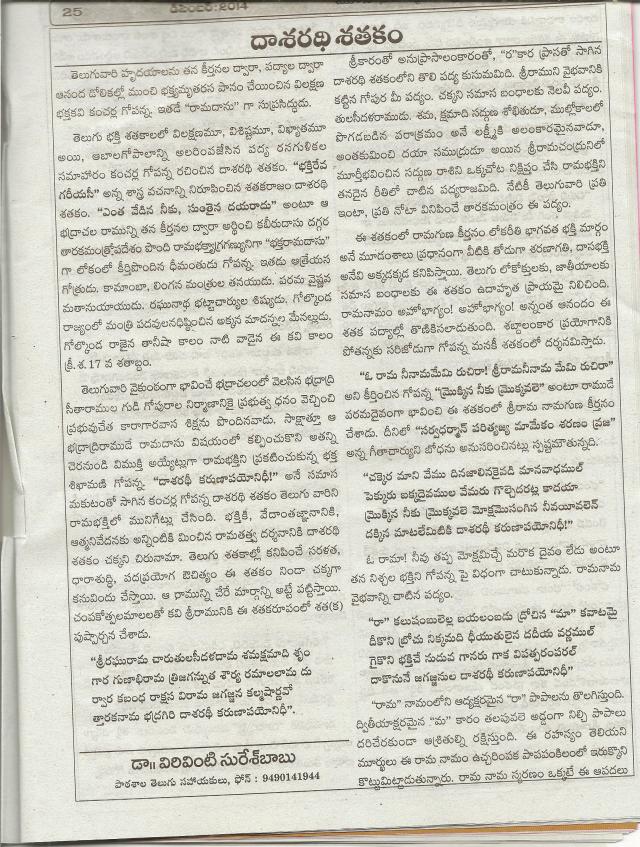 25
డిసెంబర్-2014
దాశరథి శతకం
తెలుగువారి హృదయాలను తన కీర్తనల ద్వారా, పద్యాల ద్వారా
ఆనంద డోలికల్లో ముంచి భక్త్యమృతరస పానం చేయించిన విలక్షణ
భక్తకవి కంచర్ల గోపన్న. ఇతడే "రామదాసు" గా సుప్రసిద్ధుడు.
తెలుగు భక్తి శతకాలలో విలక్షణమూ, విశిష్టమూ, విఖ్యాతమూ
అయి, ఆబాలగోపాలాన్ని అలరింపజేసిన పద్య రసగుళికల
సమాహారం కంచర్ల గోపన్న రచించిన దాశరథి శతకం. "భక్తిరేవ
గరీయసీ" అన్న శాస్త్ర వచనాన్ని నిరూపించిన శతకరాజం దాశరథి
శతకం. "ఎంత వేడిన నీకు, సుంతైన దయరాదు" అంటూ ఆ
భద్రాచల రామున్ని తన కీర్తనల ద్వారా అర్థించి కబీరుదాసు దగ్గర
తారకమంత్రోపదేశం పొంది రామభక్త్యాగ్రగణ్యునిగా "భక్తరామదాసు"
గా లోకంలో కీర్తిపొందిన ధీమంతుడు గోపన్న. ఇతడు ఆత్రేయస
గోత్రుడు. కామాంబా, లింగన మంత్రుల తనయుడు. పరమ వైష్ణవ
మతానుయాయుడు. రఘునాథ భట్టాచార్యుల శిష్యుడు. గోల్కొండ
రాజ్యంలో మంత్రి పదవులనధిష్టించిన అక్కన మాదన్నల మేనల్లుడు.
గోల్కొండ రాజైన తానీషా కాలం నాటి వాడైన ఈ కవి కాలం
క్రీ.శ.17 వ శతాబ్దం.
తెలుగువారి వైకుంఠంగా భావించే భద్రాచలంలో వెలసిన భద్రాద్రి
సీతారాముల గుడి గోపురాల నిర్మాణానికై ప్రభుత్వ ధనం వెచ్చించి
ప్రభువుచేత కారాగారవాస శిక్షను పొందినవాడు. సాక్షాత్తూ ఆ
భద్రాద్రిరాముడే రామదాసు విషయంలో కల్పించుకొని అతన్ని
చెరనుండి విముక్తి అయ్యేట్లుగా రామభక్తిని ప్రకటించుకున్న భక్త
శిఖామణి గోపన్న. "దాశరథీ కరుణాపయోనిధీ!" అనే సమాస
మకుటంతో సాగిన కంచర్ల గోపన్న దాశరథి శతకం తెలుగు వారిని
రామభక్తిలో మునిగేట్లు చేసింది. భక్తికి, వేదాంతజ్ఞానానికి,
ఆత్మనివేదనకు అన్నింటికి మించిన రామతత్త్వ దర్శనానికి దాశరథి
శతకం చక్కని చిరునామా. తెలుగు శతకాల్లో కనిపించే సరళత,
ధారాశుద్ధి, పదప్రయోగ ఔచిత్యం ఈ శతకం నిండా చక్కగా
కనువిందు చేస్తాయి. ఆ ధామున్ని చేరే మార్గాన్ని అట్టే పట్టిస్తాయి.
చంపకోత్పలమాలలతో కవి శ్రీరామునికి ఈ శతకరూపంలో శత(క)
పుష్పార్చన చేశాడు.
"శ్రీరఘురామ చారుతులసీదళదామ శమక్షమాది శృం
గార గుణాభిరామ త్రిజగన్నుత శౌర్య రమాలలామ దు
ర్వార కబంధ రాక్షస విరామ జగజ్జన కల్మషార్ణవో
త్తారకనామ భద్రగిరి దాశరథీ కరుణాపయోనిధీ".
డా॥ విరివింటి సురేశ్‌బాబు
పాఠశాల తెలుగు సహాయకులు, ఫోన్ : 9490141944
శ్రీకారంతో అనుప్రాసాలంకారంతో, "ర"కార ప్రాసతో సాగిన
దాశరథి శతకంలోని తొలి పద్య కుసుమమిది. శ్రీరాముని వైభవానికి
కట్టిన గోపుర మీ పద్యం. చక్కని సమాస బంధాలకు నెలవీ పద్యం.
తులసీదళరాముడు. శమ, క్షమాది సద్గుణ శోభితుడూ, ముల్లోకాలలో
పొగడబడిన పరాక్రమం అనే లక్ష్మీకి అలంకారమైనవాడూ,
అంతకుమించి దయా సముద్రుడూ అయిన శ్రీరామచంద్రునిలో
మూర్తీభవించిన సద్గుణ రాశిని ఒక్కచోట నిక్షిప్తం చేసి రామభక్తిని
తనదైన రీతిలో చాటిన పద్యరాజమిది. నేటికీ తెలుగువారి ప్రతి
ఇంటా, ప్రతి నోటా వినిపించే తారకమంత్రం ఈ పద్యం.
ఈ శతకంలో రామగుణ కీర్తనం లోకరీతి భాగవత భక్తి మార్గం
అనే మూడంశాలు ప్రధానంగా వీటికి తోడుగా శరణాగతి, దాసభక్తి
అనేవి అక్కడక్కడ కనిపిస్తాయి. తెలుగు లోకోక్తులకు, జాతీయాలకు
సమాస బంధాలకు ఈ శతకం ఉదాహృత ప్రాయమై నిలిచింది.
రామనామం అహోభాగ్యం! అహోభాగ్యం! అన్నంత ఆనందం ఈ
శతక పద్యాల్లో తొణికిసలాడుతుంది. శబ్దాలంకార ప్రయోగానికి
పోతన్నకు సరిజోడుగా గోపన్న మనకీ శతకంలో దర్శనమిస్తాడు.
"ఓ రామ నీనామమేమి రుచిరా! శ్రీరామనీనామ మేమి రుచిరా"
అని కీర్తించిన గోపన్న "మ్రొక్కిన నీకు మ్రొక్కవలె" అంటూ రాముడే
పరమదైవంగా భావించి ఈ శతకంలో శ్రీరామ నామగుణ కీర్తనం
చేశాడు. దీనిలో "సర్వధర్మాన్ పరిత్యజ్య మామేకం శరణం వ్రజ"
అన్న గీతాచార్యుని బోధను అనుసరించినట్లు స్పష్టమౌతున్నది.
"చక్కెర మాని వేము దినజాలినకైవడి మానవాధముల్
పెక్కురు ఒక్కదైవముల వేమరు గొల్చెదరట్ల కాదయా
మ్రొక్కిన నీకు మ్రొక్కవలె మోక్షమొసంగిన నీవయీవలెన్
దక్కిన మాటలేమిటికి దాశరథీ కరుణాపయోనిధీ!"
ఓ రామా! నీవు తప్ప మోక్షమిచ్చే మరొక దైవం లేదు అంటూ
తన నిశ్చల భక్తిని గోపన్న పై విధంగా చాటుకున్నాడు. రామనామ
వైభవాన్ని చాటిన పద్యం.
"రా" కలుషంబులెల్ల బయలంబడు ద్రోచిన "మా" కవాటమై
దీకొని బ్రోచు నిక్కమని ధీయుతులైన దదీయ వర్ణముల్
గైకొని భక్తిచే నుడువ గానరు గాక విపత్పరంపరల్
దాకొనునే జగజ్జనుల దాశరథీ కరుణాపయోనిధీ"
"రామ" నామంలోని ఆద్యక్షరమైన "రా" పాపాలను తొలగిస్తుంది.
ద్వితీయాక్షరమైన "మ" కారం తలుపువలె అడ్డంగా నిల్చి పాపాలు
దరిచేరకుండా ఆశ్రితుల్ని రక్షిస్తుంది. ఈ రహస్యం తెలియని
మూర్ఖులు ఈ రామ నామం ఉచ్చరింపక పాపపంకిలంలో ఇరుక్కొని
కొట్టుమిట్టాడుతున్నారు. రామ నామ స్మరణం ఒక్కటే ఈ ఆపదలు